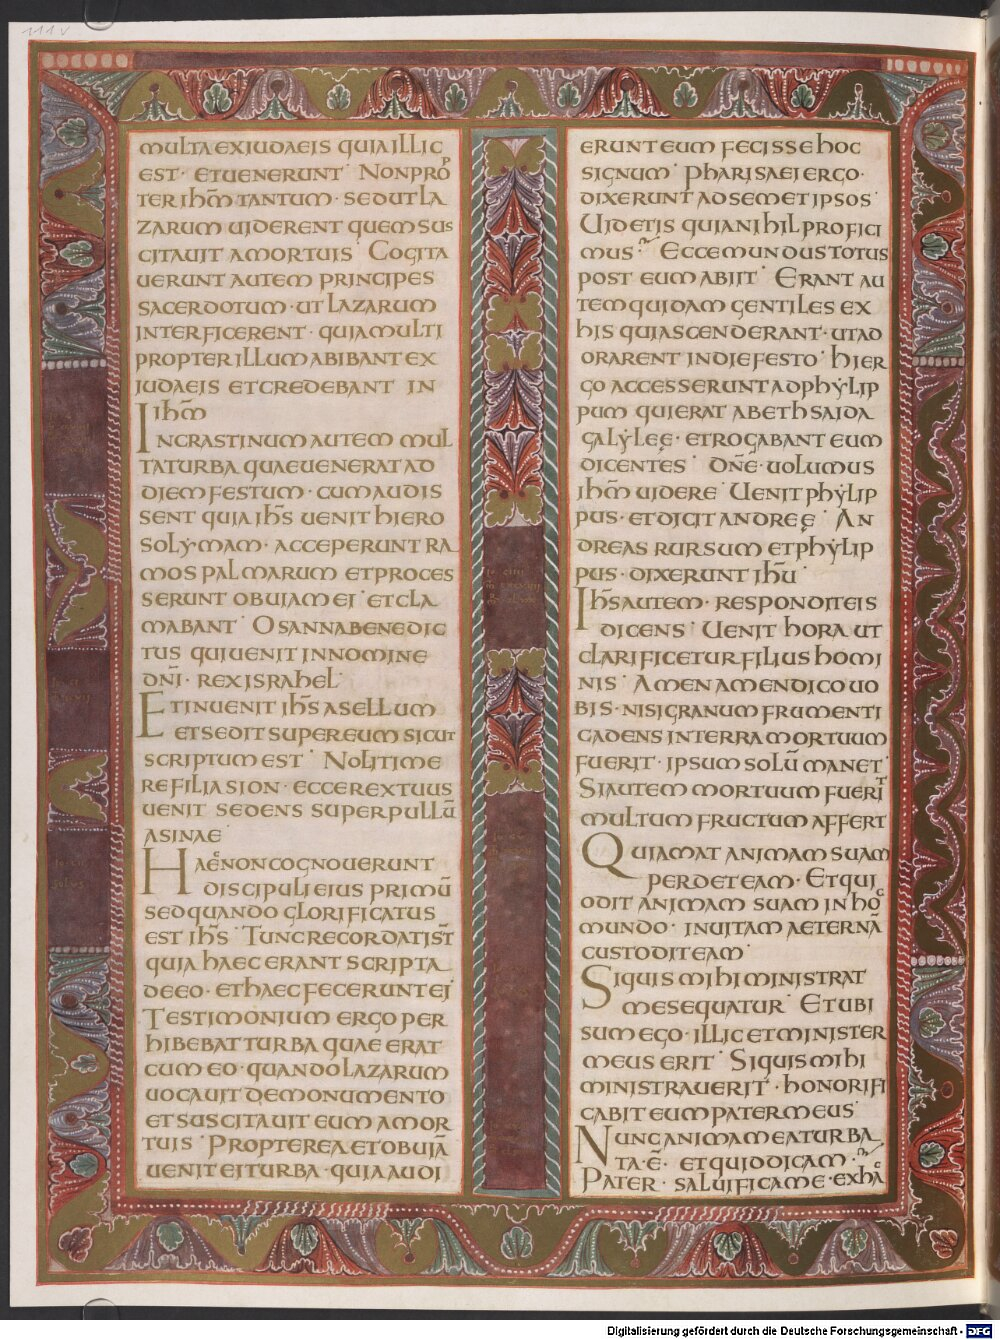 111 v
MULTA EX IUDAEIS QUIA ILLIC
EST · ET UENERUNT · NON PROP
TER IHM̅ TANTUM · SED UT LA
ZARUM UIDERENT QUEM SUS
CITAUIT A MORTUIS · COGITA
UERUNT AUTEM PRINCIPES
SACERDOTUM · UT LAZARUM
INTERFICERENT · QUIA MULTI
PROPTER ILLUM ABIBANT EX
IUDAEIS ET CREDEBANT IN
IHM̅
IN CRASTINUM AUTEM MUL
TA TURBA QUAE UENERAT AD
DIEM FESTUM · CUM AUDIS
SENT QUIA IHS̅ UENIT HIERO
SOLẎMAM · ACCEPERUNT RA
MOS PALMARUM ET PROCES
SERUNT OBUIAM EI · ET CLA
MABANT · OSANNA BENEDIC
TUS QUI UENIT IN NOMINE
DN̅I · REX ISRAHEL ·
ET INUENIT IHS̅ ASELLUM
ET SEDIT SUPER EUM SICUT
SCRIPTUM EST · NOLI TIME
RE FILIA SION · ECCE REX TUUS
UENIT SEDENS SUPER PULLU̅
ASINAE ·
HAEC NON COGNOUERUNT
DISCIPULI EIUS PRIMU̅
SED QUANDO GLORIFICATUS
EST IHS̅ · TUNC RECORDATI ST̅
QUIA HAEC ERANT SCRIPTA
DE EO · ET HAEC FECERUNT EI ·
TESTIMONIUM ERGO PER
HIBEBAT TURBA QUAE ERAT
CUM EO · QUANDO LAZARUM
UOCAUIT DE MONUMENTO
ET SUSCITAUIT EUM A MOR
TUIS · PROPTEREA ET OBUIA̅
UENIT EI TURBA · QUIA AUDI
ERUNT EUM FECISSE HOC
SIGNUM · PHARISAEI ERGO ·
DIXERUNT AD SEMETIPSOS ·
UIDETIS QUIA NIHIL PROFICI
MUS · ECCE MUNDUS TOTUS
POST EUM ABIIT · ERANT AU
TEM QUIDAM GENTILES EX
HIS QUI ASCENDERANT · UT AD
ORARENT IN DIE FESTO · HI ER
GO ACCESSERUNT AD PHẎLIP
PUM QUI ERAT A BETHSAIDA
GALẎLEĘ · ET ROGABANT EUM
DICENTES · DN̅E · UOLUMUS
IHM̅ UIDERE · UENIT PHẎLIP
PUS · ET DICIT ANDREĘ · AN
DREAS RURSUM ET PHẎLIP
PUS · DIXERUNT IHU̅ ·
IHS̅ AUTEM · RESPONDIT EIS
DICENS · UENIT HORA UT
CLARIFICETUR FILIUS HOMI
NIS · AMEN AMEN DICO UO
BIS · NISI GRANUM FRUMENTI
CADENS IN TERRA MORTUUM
FUERIT · IPSUM SOLU̅ MANET ·
SI AUTEM MORTUUM FUERIT
MULTUM FRUCTUM AFFERT
QUI AMAT ANIMAM SUAM
PERDET EAM · ET QUI
ODIT ANIMAM SUAM IN HOC
MUNDO · IN UITAM AETERNA̅
CUSTODIT EAM ·
SI QUIS MIHI MINISTRAT
ME SEQUATUR · ET UBI
SUM EGO · ILLIC ET MINISTER
MEUS ERIT · SI QUIS MIHI
MINISTRAUERIT · HONORIFI
CABIT EUM PATER MEUS ·
NUNC ANIMA MEA TURBA
TA · E̅ · ET QUID DICAM ·
PATER · SALUIFICA ME · EX HAC
Digitalisierung gefördert durch die Deutsche Forschungsgemeinschaft - DFG